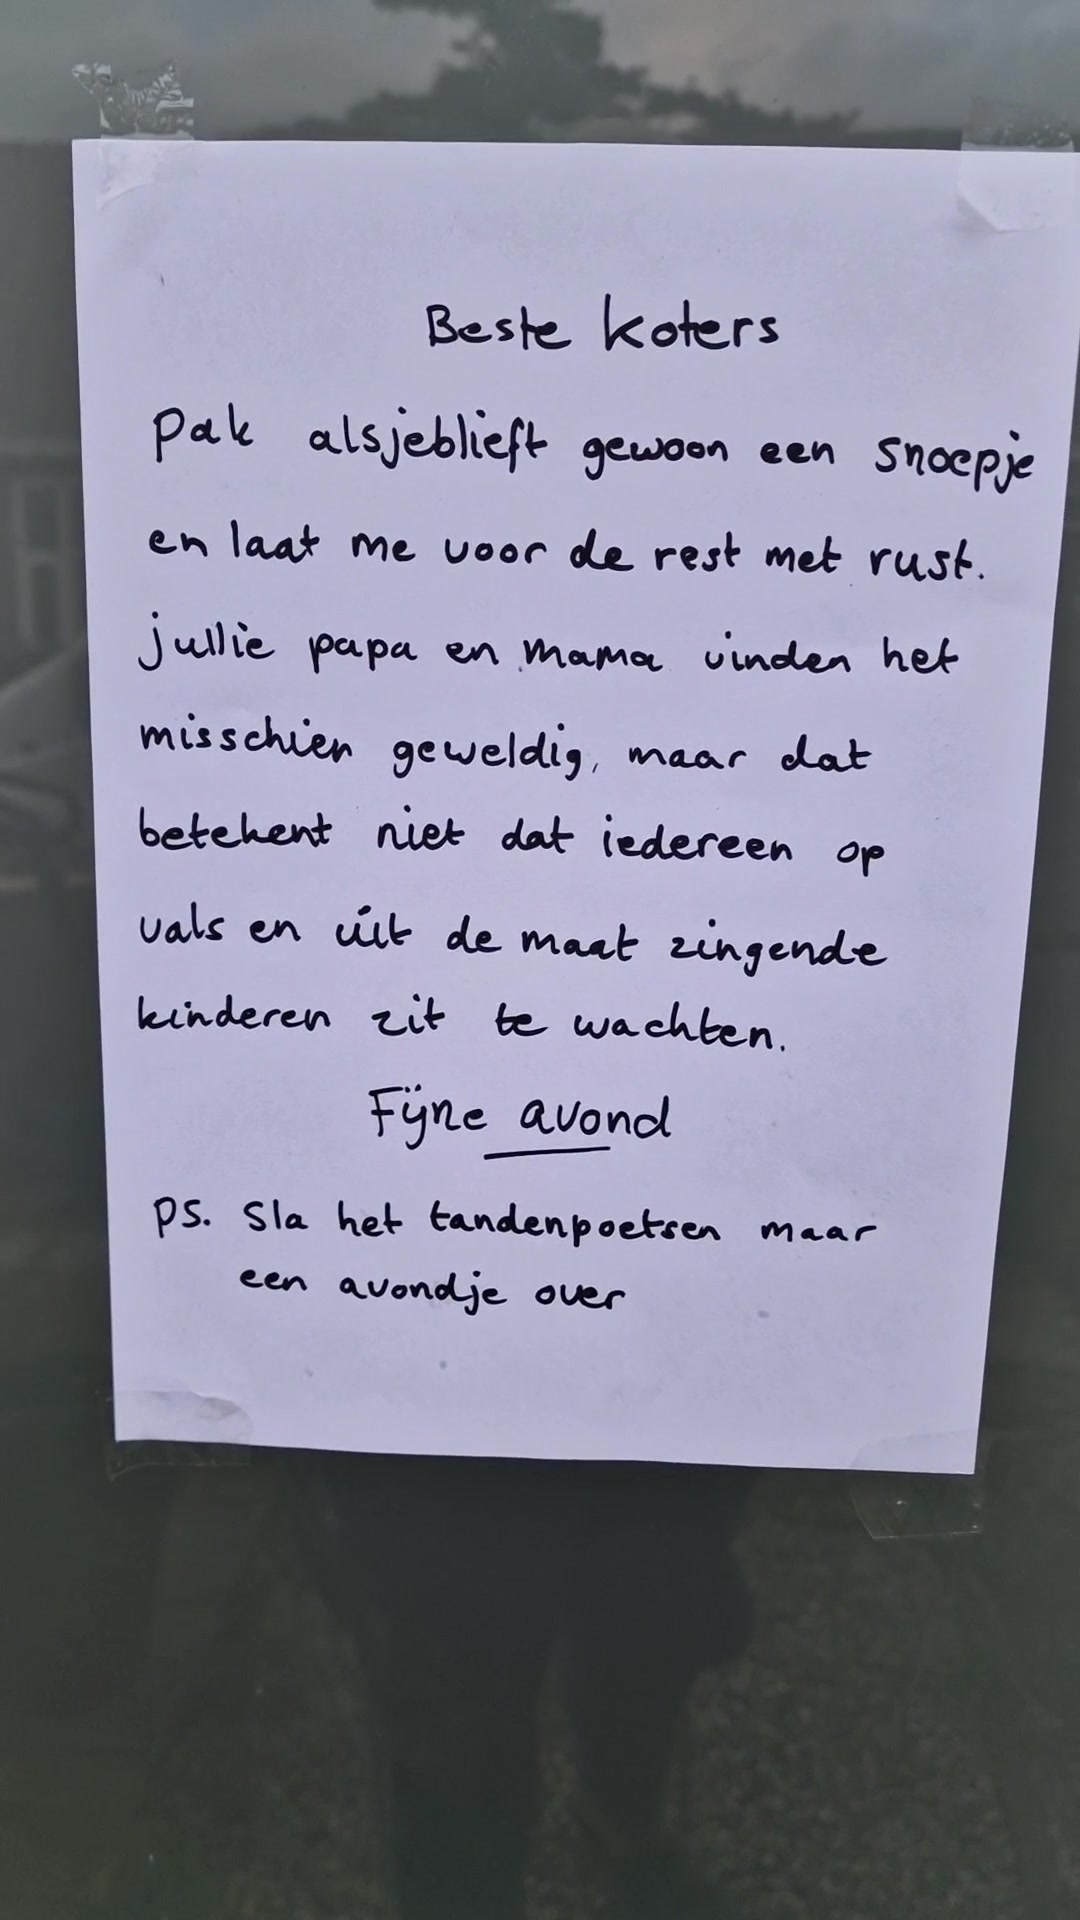 Beste koters
Pak alsjeblieft gewoon een snoepje
en laat me voor de rest met rust.
jullie papa en mama vinden het
misschien geweldig, maar dat
betekent niet dat iedereen op
vals en uit de maat zingende
kinderen zit te wachten.
Fijne avond
PS. Sla het tandenpoetsen maar
een avondje over